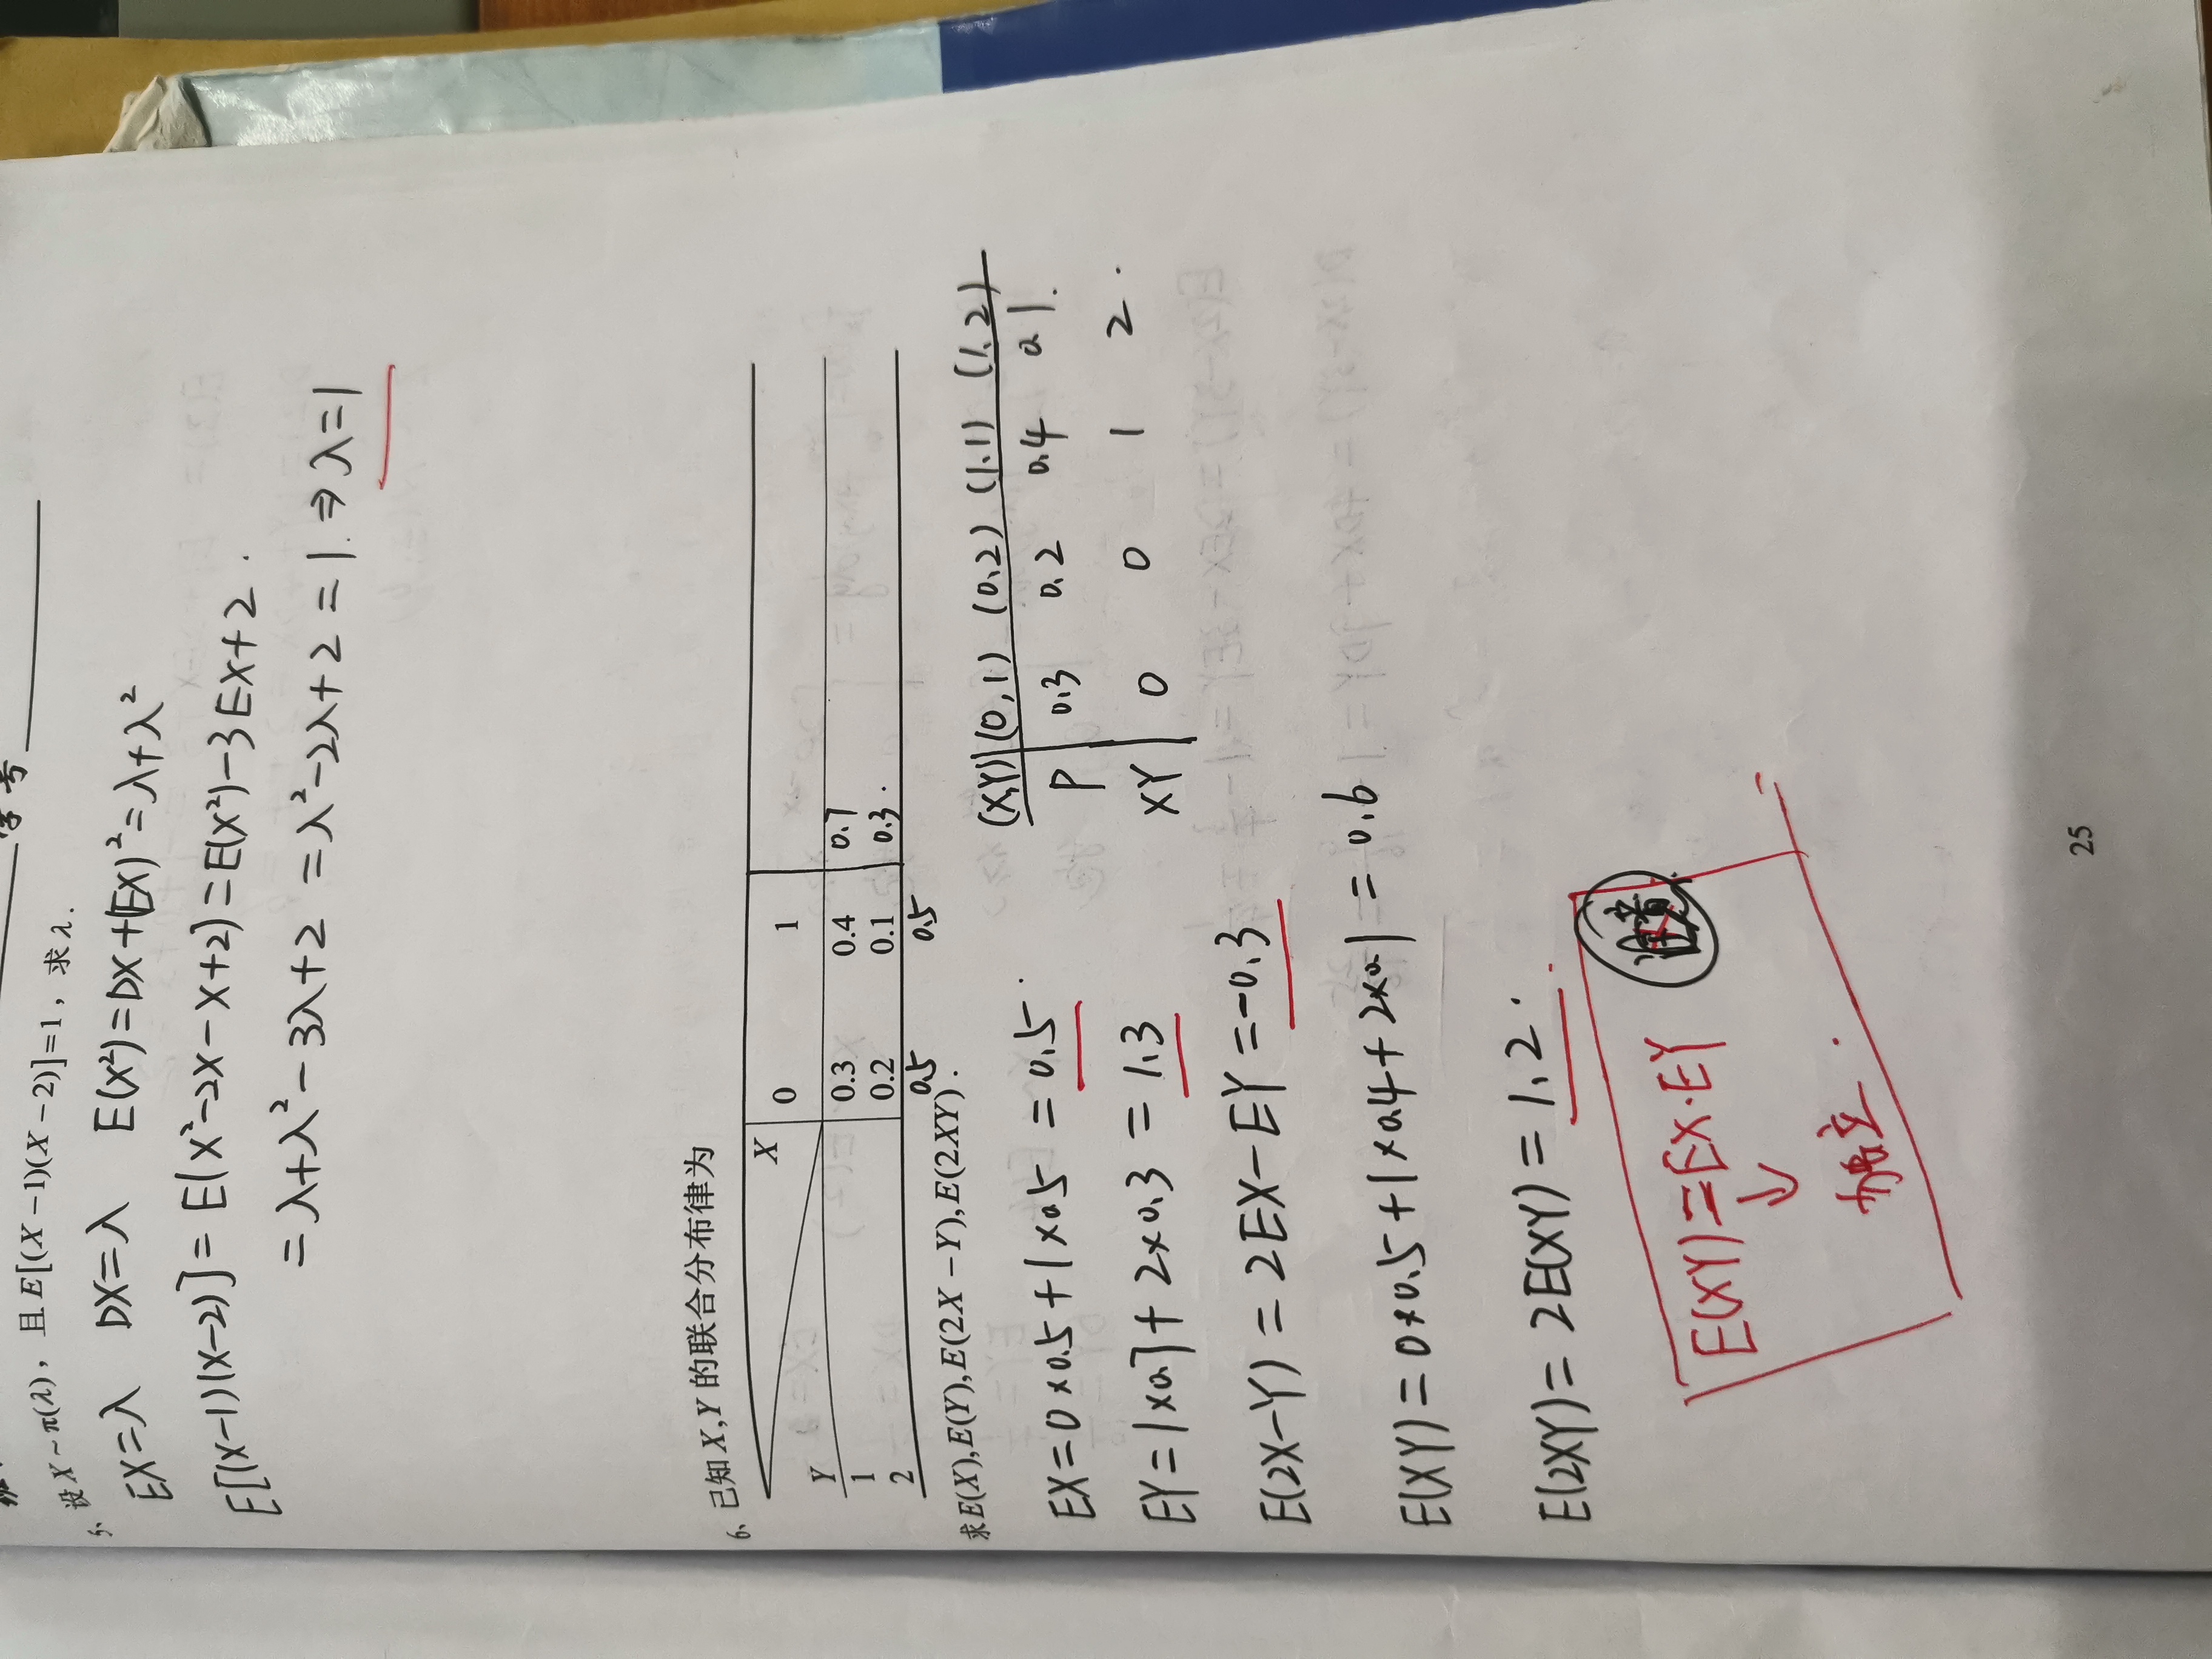 学号
5、设X~π(λ)，且E[(X-1)(X-2)]=1，求λ.
EX=λ DX=λ E(X²)=DX+(EX)²=λ+λ²
E[(X-1)(X-2)]=E(X²-2X-X+2)=E(X²)-3EX+2.
=λ+λ²-3λ+2=λ²-2λ+2=1.⇒λ=1
6、已知X,Y的联合分布律为
X 0 1
Y
1 0.3 0.4 0.7
2 0.2 0.1 0.3.
0.5 0.5
求E(X),E(Y),E(2X-Y),E(2XY).
(X,Y) (0,1) (0,2) (1,1) (1,2)
P 0.3 0.2 0.4 0.1.
XY 0 0 1 2.
EX=0×0.5+1×0.5=0.5.
EY=1×0.7+2×0.3=1.3
E(2X-Y)=2EX-EY=-0.3
E(XY)=0×0.5+1×0.4+2×0.1=0.6
E(2XY)=2E(XY)=1.2.
E(XY)=EX·EY
↓
独立.
25